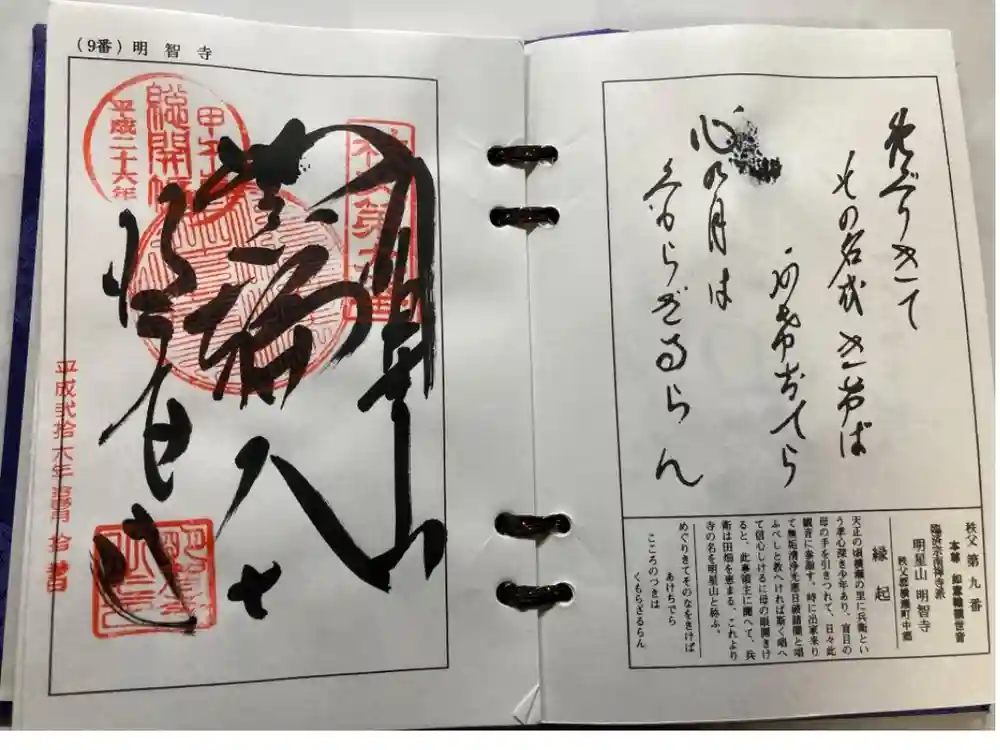 (9番)明智寺
甲午歳
総開帳
平成二十六年
秩父第九番
平成弐拾六年
めぐりきて
その名をきけば
あけちでら
心の月は
くもらざるらん
秩父第九番
本尊 如意輪観世音
臨済宗南禅寺派
明星山 明智寺
秩父郡横瀬町中郷
縁起
天正の頃横瀬の里に兵衛とい
う孝心深き少年あり、盲目の
母の手を引きつれて、日々此
観音に参詣す。時に出家来り
て無垢清浄光恵日破諸闇と唱
ふべしと教へければ斯く唱へ
て信心しけるに母の眼開きけ
ると、此事領主に聞へて、兵
衛は田畑を恵まる、これより
寺の名を明星山と称ふ、
めぐりきてそのなをきけば
あけちでら
こころのつきは
くもらざるらん